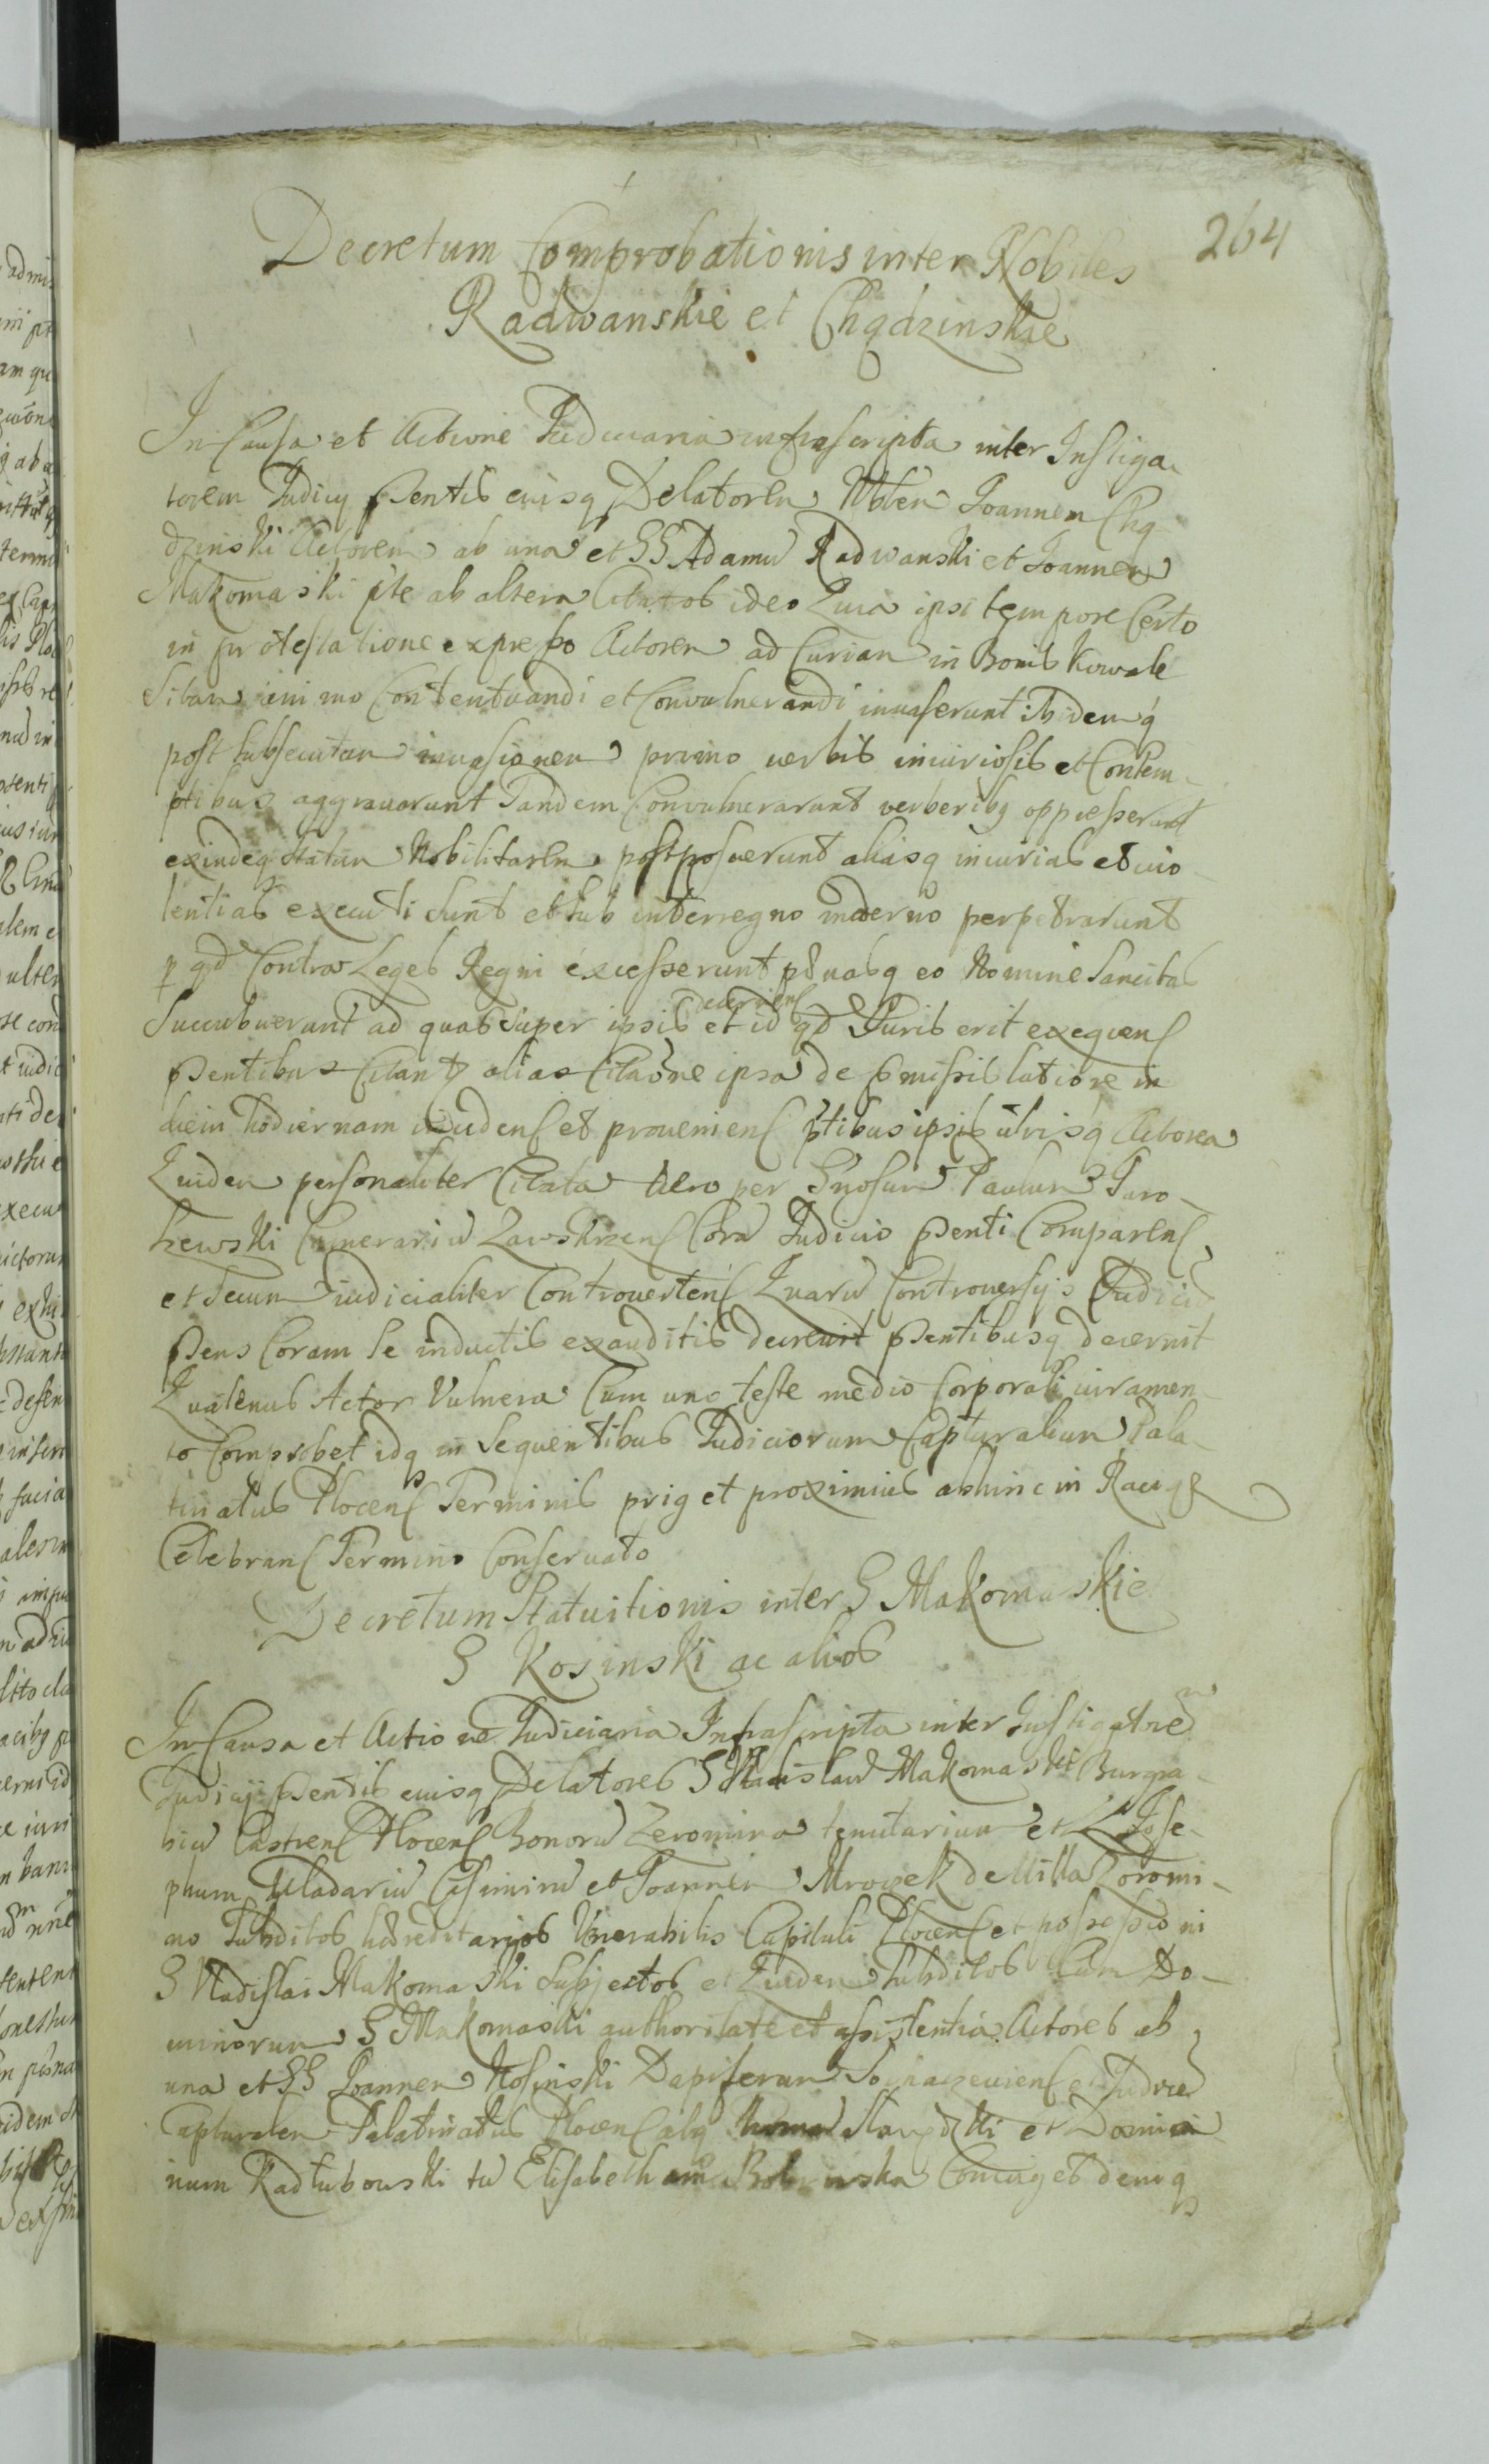 264
Decretum Comprobationis inter Nobiles
Radwanskie et Chądzinskie
In Causa et Actione Judiciaria infrascripta inter Instiga-
torem Judicij pſentis eiusq Delatorem Nblem Joannem Chą
dzinski Actorem ab una et GG Adamū Radwanski et Joannem
Makomaski pte ab altera Citatos ideo Quia ipsi tempore Certo
in protestatione expresso Actorem ad Curiam in Bonis Kowale
Sitam animo Contentuandi et Convulnerandi invaserunt ibidemq
post subsecutam invasionem primo verbis iniuriosis et Contem-
ptibus aggravarunt Tandem Convulnerarunt verberibq oppresserunt
exindeq statum Nobilitarem postposuerunt aliasq iniurias et vio-
lentias executi sunt et sub interregno moderno perpetrarunt
p qd Contra Leges Regni excesserunt pœnasq eo Nomine Sancitas
Succubuerunt ad quas super ipsis decernen
et id qd Juris erit exequen
pſentibus Citantz alias Citaōne ipsa de pmissis latiore in
diem hodiernam inciden et provenien ptibus ipsis utrisq Actorea
Quidem personaliter Citata Vero per Gnosum Paulum Garo-
hewski Camerariū Zawskrzen Corā Judicio pſenti Comparen
et secum judicialiter Controverten Quarū Controversijs Judiciū
pſens Coram se inductis exauditis decrevit pſentibusq decernit
Quatenus Actor Vulnera Cum uno teste medio Corporali iuramen-
to Comprobet idq in sequentibus Judiciorum Capturalium Pala-
tinatus Plocen Terminis prig et proximius abhinc in Raciąż
Celebran Termino Conservato
Decretum Statuitionis inter G Makomaskie
G Kosinski ac alios
In Causa et Actione Judiciaria Infrascripta inter Instigatorē
Judicij pſentis eiusq Delatores G Vladislaū Makomaski Burgra-
biū Castren Plocen Bonorū Zeromina tenutarium et L Jose-
phum Casimirū et Joannem Mrowek de Villa Zoromi-
no Subditos hæreditarios Venerabilis Capituli Plocen et possessioni
G Vladislai Makomaski Subjectos et Quidem Subditos Cum Do-
minorum G Makomaski authoritate et assistentia Actores ab
una et GG Joannem Kosinski Dapiferum Sochaczevien et Judicē
Capturalem Palatinatus Plocen atq et Domini
num Radlubowski tū Elisabetham Coniuges deniq